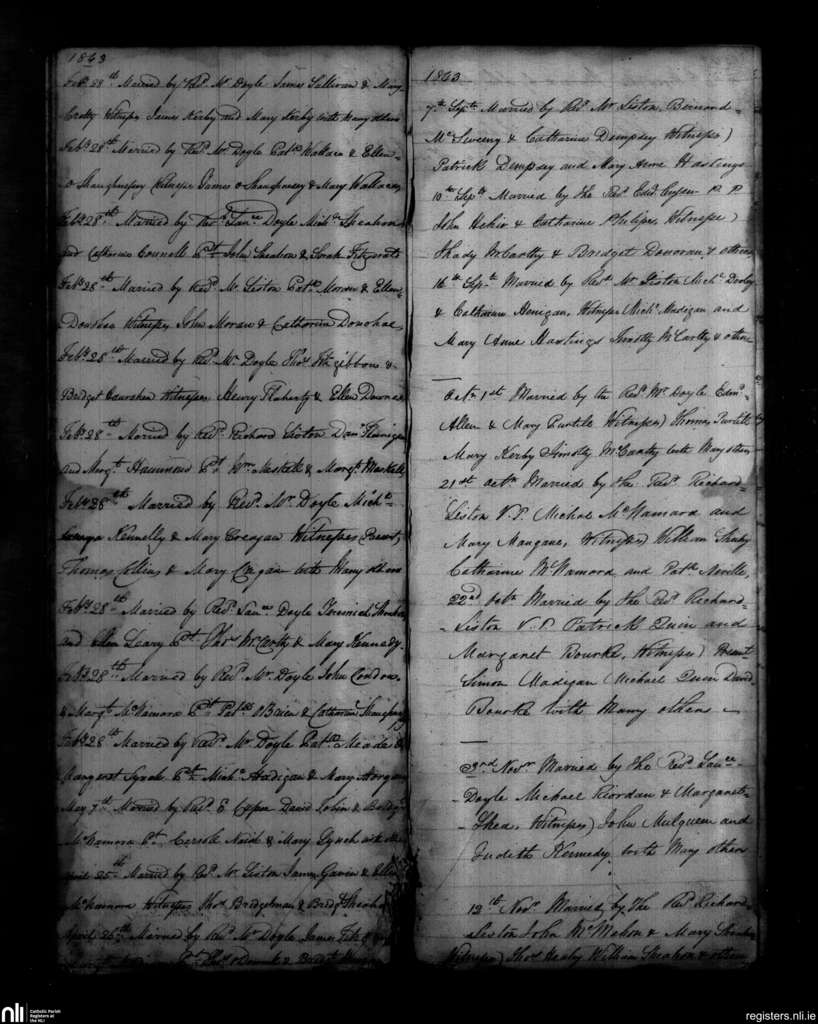 1843
Feby 28th Married by Revd Mr Doyle James Sullivan & Mary
Crotty Witnesses James Kerby and Mary Kerby with many others
Feby 28th Married by Revd Mr Doyle Patk Wallace & Ellen
O Shaughnessy Witnesses James O Shaughnessy & Mary Wallace
Feby 28th Married by Revd Laure Doyle Michl Sheahan
and Catherine Connell Pt John Sheahan & Sarah Fitzgerald
Feby 28th Married by Revd Mr Liston Patk Moran & Ellen
Donohoe Witnesses John Moran & Catherine Donohoe
Feby 28th Married by Revd Mr Doyle Thos Fitzgibbon &
Bridget Witnesses Henry Flaherty & Ellen Downes
Feby 28th Married by Revd Richard Liston Danl Finnigan
and Margt Hammond Pt Wm Meskell & Margt Meskell
Feby 28th Married by Revd Mr Doyle Michl
Kennelly & Mary Creagan Witnesses Present
Thomas Collins & Mary Cregan with Many others
Feby 28th Married by Revd Laure Doyle Jeremiah
and Ellen Leary Pt Thos McCarthy & Mary Kennedy
Feby 28th Married by Revd Mr Doyle John Condon
& Margt McNamara Pt Patk OBrien & Catherine
Feby 28th Married by Revd Mr Doyle Patk Meade &
Margaret Lynch Pt Michl Hadigan & Mary Horgan
May 7th Married by Revd E Cussen David Tobin & Bridgt
McNamara Pt Carroll Naish & Mary Lynch with
April 25th Married by Revd Mr Liston James Gavin & Ellen
McNamara Witnesses Thos Bridgeman & Bridgt Sheahan
April 26th Married by Revd Mr Doyle James
Pt Thos & Bridgt
1843
7th Septr Married by Revd Mr Liston Bernard
McSweeny & Catharine Dempsey Witnesses)
Patrick Dempsey and Mary Anne Hastings
10th Septr Married by the Revd Edwd Cussen P P
John Hickie & Catharine Philips, Witnesses)
Thady McCarthy & Bridget Donovan & others
16th Septr Married by Revd Mr Liston Michl Dooly
& Catharine Henigan, Witnesses Michl Madigan and
Mary Anne Hastings Timothy McCarthy & others
Octr 1st Married by the Revd Mr Doyle Edmd
Allen & Mary Purtile Witnesses) Thomas Purtile
Mary Kerby Timothy McCarthy with Many others
21st Octr Married by the Revd Richard
Liston V.P. Michael McNamara and
Mary Mangane, Witnesses) William Sheehy
Catharine McNamara and Patk Neville,
22nd Octr Married by the Revd Richard
Liston V.P Patrick Quin and
Margaret Bourke, Witnesses) Present
Simon Madigan Michael Quin David
Bourke with Many others
3rd Novr Married by the Revd Laure
Doyle Michael Riordan & Margaret
Shea, Witnesses) John Mulqueen and
Judith Kennedy with Many others
12th Novr Married by The Revd Richard
Liston John McMahon & Mary
Witnesses) Thos Healy William Sheahan & others
nli
Catholic Parish
Registers at
the NLI
registers.nli.ie